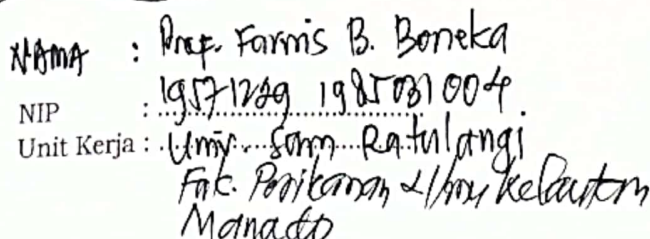 NAMA : Prof. Farnis B. Boneka
NIP : 19571229 198503 1 004
Unit Kerja : Univ. Sam Ratulangi
Fak. Perikanan & Ilmu Kelautan
Manado